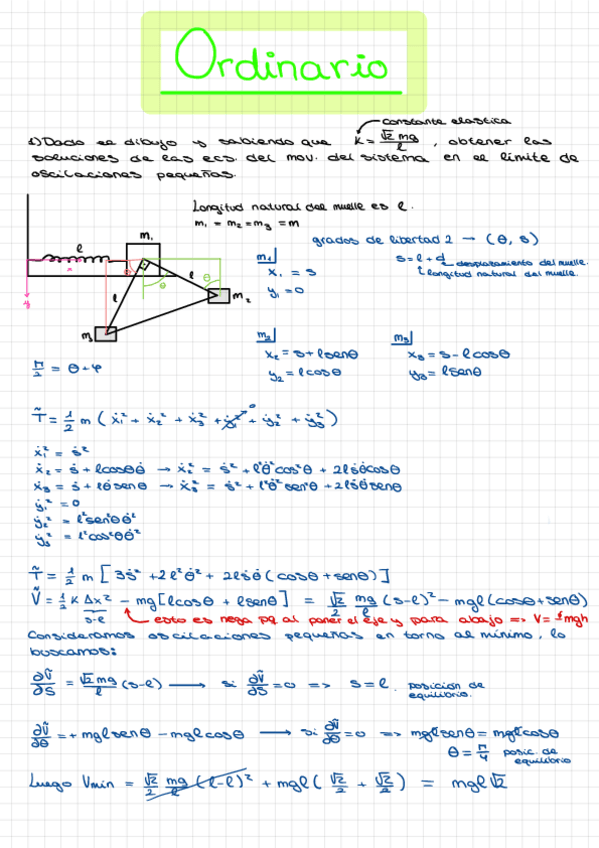 Ordinario
constante elástica
1) Dado el dibujo y sabiendo que K = √2 mg / l , obtener las
soluciones de las ecs. del mov. del sistema en el límite de
oscilaciones pequeñas.
Longitud natural del muelle es l.
m₁ = m₂ = m₃ = m
grados de libertad 2 → (θ, s)
l
m₁
x
y
φ
θ
θ
l
l
m₂
m₃
m₁
x₁ = s
y₁ = 0
s = l + d
desplazamiento del muelle.
longitud natural del muelle.
m₂
x₂ = s + l senθ
y₂ = l cosθ
m₃
x₃ = s - l cosθ
y₃ = l senθ
π/2 = θ + φ
T̃ = 1/2 m ( ẋ₁² + ẋ₂² + ẋ₃² + ẏ₁² + ẏ₂² + ẏ₃² )
0
ẋ₁² = ṡ²
ẋ₂ = ṡ + l cosθ θ̇ → ẋ₂² = ṡ² + l²θ̇² cos²θ + 2lṡθ̇ cosθ
ẋ₃ = ṡ + lθ̇ senθ → ẋ₃² = ṡ² + l²θ̇² sen²θ + 2lṡθ̇ senθ
ẏ₁² = 0
ẏ₂² = l² sen²θ θ̇²
ẏ₃² = l² cos²θ θ̇²
T̃ = 1/2 m [ 3ṡ² + 2l²θ̇² + 2lṡθ̇ (cosθ + senθ) ]
Ṽ = 1/2 K Δx² - mg[l cosθ + l senθ] = √2/2 mg/l (s-l)² - mgl (cosθ + senθ)
s-l
esto es nega pq al poner el eje y para abajo => V = ±mgh
Consideramos oscilaciones pequeñas en torno al mínimo, lo
buscamos:
∂Ṽ/∂s = √2 mg/l (s-l) → si ∂Ṽ/∂s = 0 => s = l. posición de
equilibrio.
∂Ṽ/∂θ = + mgl senθ - mgl cosθ → si ∂Ṽ/∂θ = 0 => mgl senθ = mgl cosθ
θ = π/4 posic. de
equilibrio
Luego Vmin = √2/2 mg/l (l-l)² + mgl ( √2/2 + √2/2 ) = mgl√2